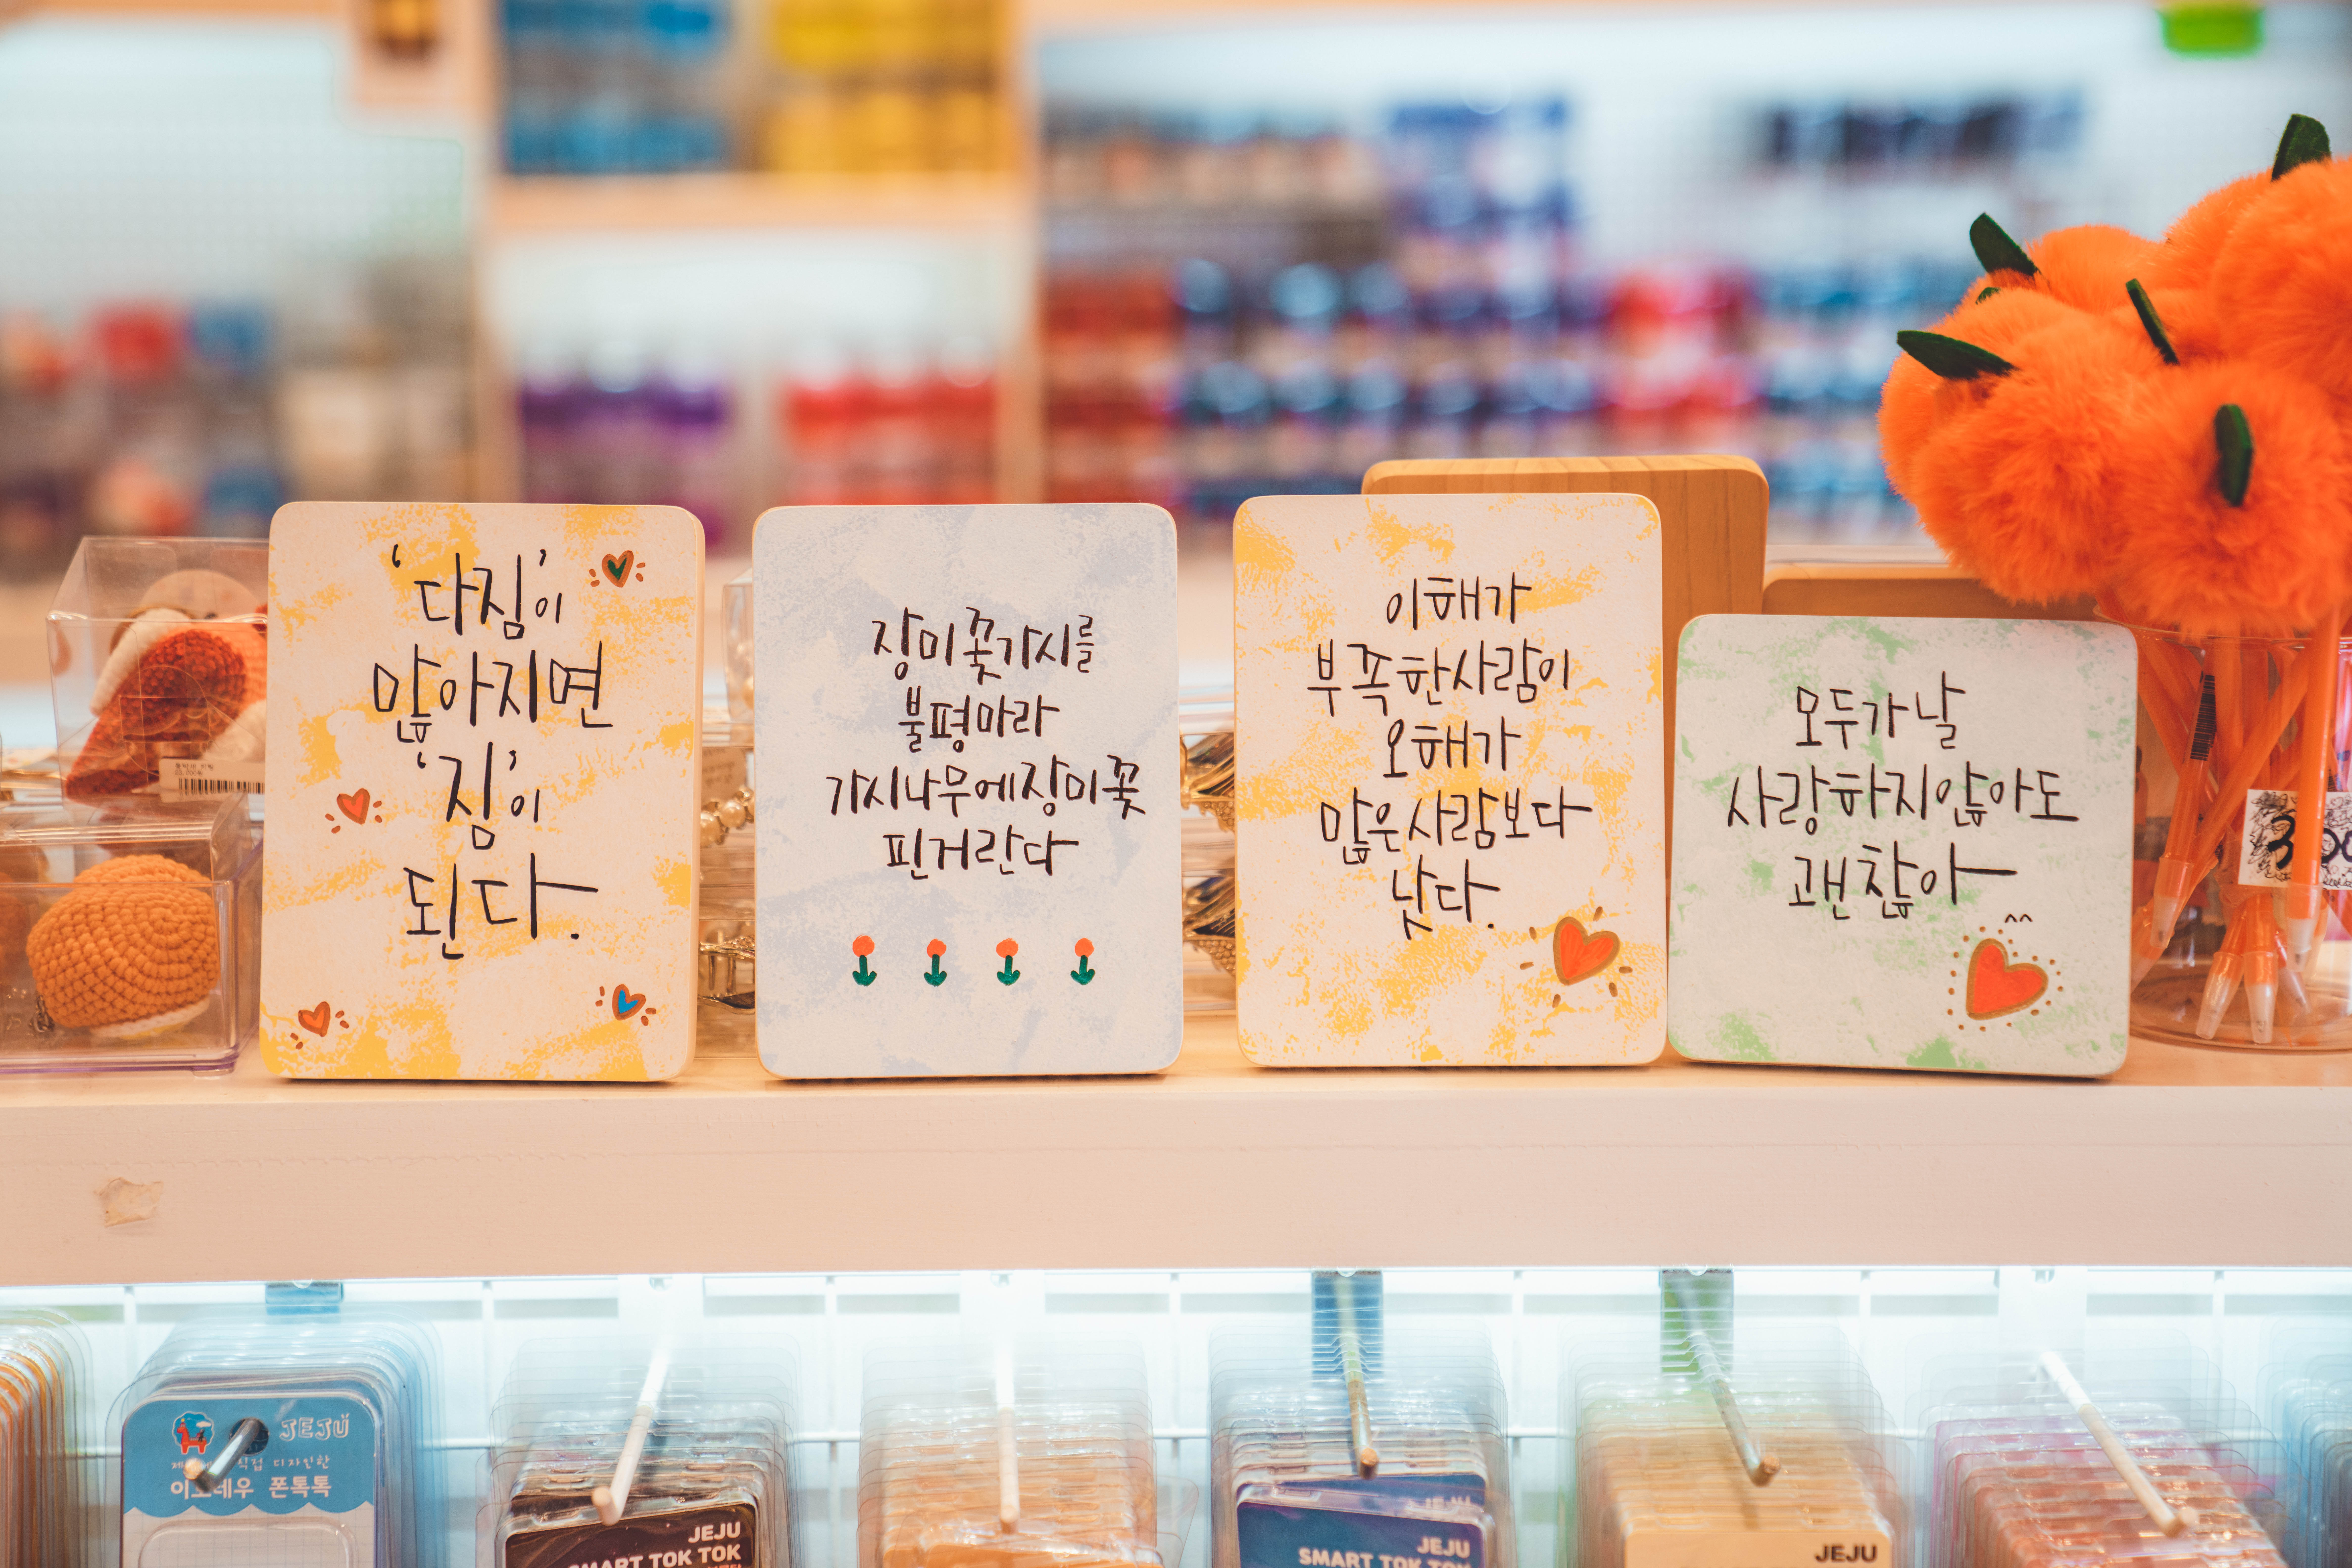 '다짐'이
많아지면
'짐'이
된다.
장미꽃가시를
불평마라
가시나무에장미꽃
핀거란다
이해가
부족한사람이
오해가
많은사람보다
낫다.
모두가날
사랑하지않아도
괜찮아
^^
JEJU
디자인한
폰톡톡
JEJU
SMART TOK TOK
JEJU
SMART TOK TOK
JEJU